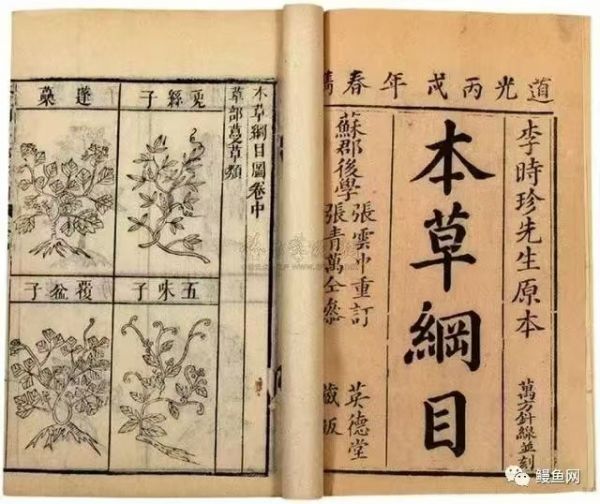 道光丙戌年春鐫
李時珍先生原本
萬方針線並刻
本草綱目
蘇郡後學
張雲中重訂
張青萬仝參
英德堂
藏板
本草綱目圖卷中
草部蔓草類
兎絲子
蓬蘽
五味子
覆盆子
鳗鱼网